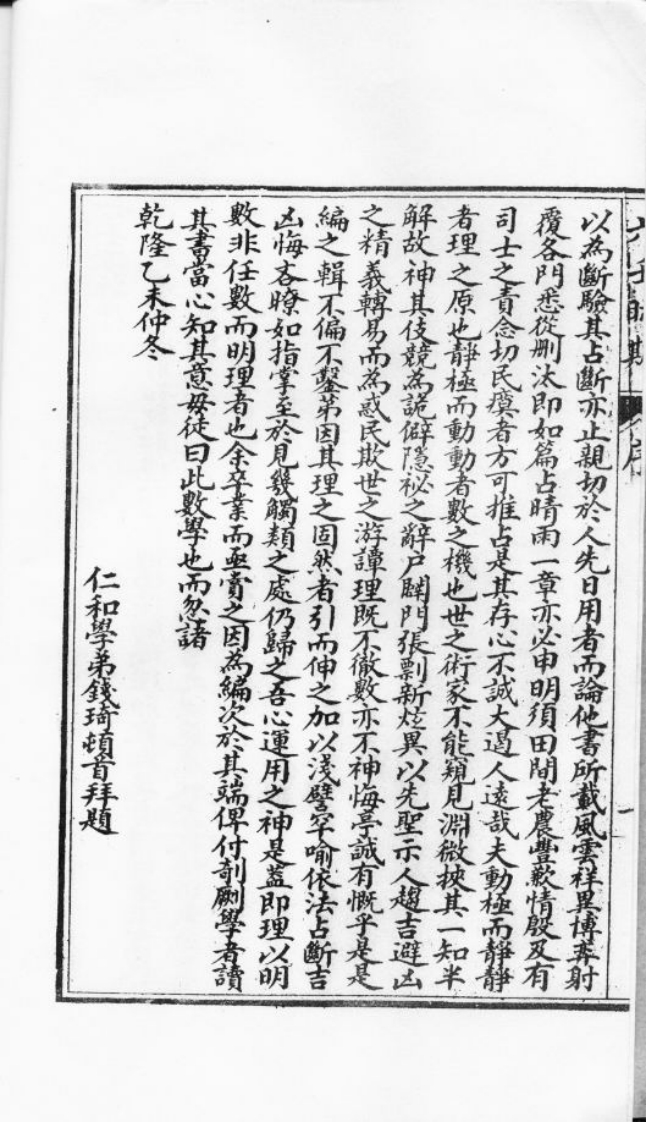 以為斷驗其占斷亦止親切於人先日用者而論他書所載風雲祥異博弈射
覆各門悉從刪汰即如篇占晴雨一章亦必申明須田間老農豐歉情殷及有
司士之責念切民瘼者方可推占是其存心不誠大過人遠哉夫動極而靜靜
者理之原也靜極而動動者數之機也世之術家不能窺見淵微挾其一知半
解故神其伎競為詭僻隱祕之辭戶闢門張剽新炫異以先聖示人趨吉避凶
之精義轉易而為惑民欺世之游譚理既不徹數亦不神悔亭誠有慨乎是是
編之輯不偏不鑿第因其理之固然者引而伸之加以淺譬罕喻依法占斷吉
凶悔吝瞭如指掌至於見幾觸類之處仍歸之吾心運用之神是蓋即理以明
數非任數而明理者也余卒業而亟賞之因為編次於其端俾付剞劂學者讀
其書當心知其意毋徒曰此數學也而忽諸
乾隆乙未仲冬
仁和學弟錢琦頓首拜題